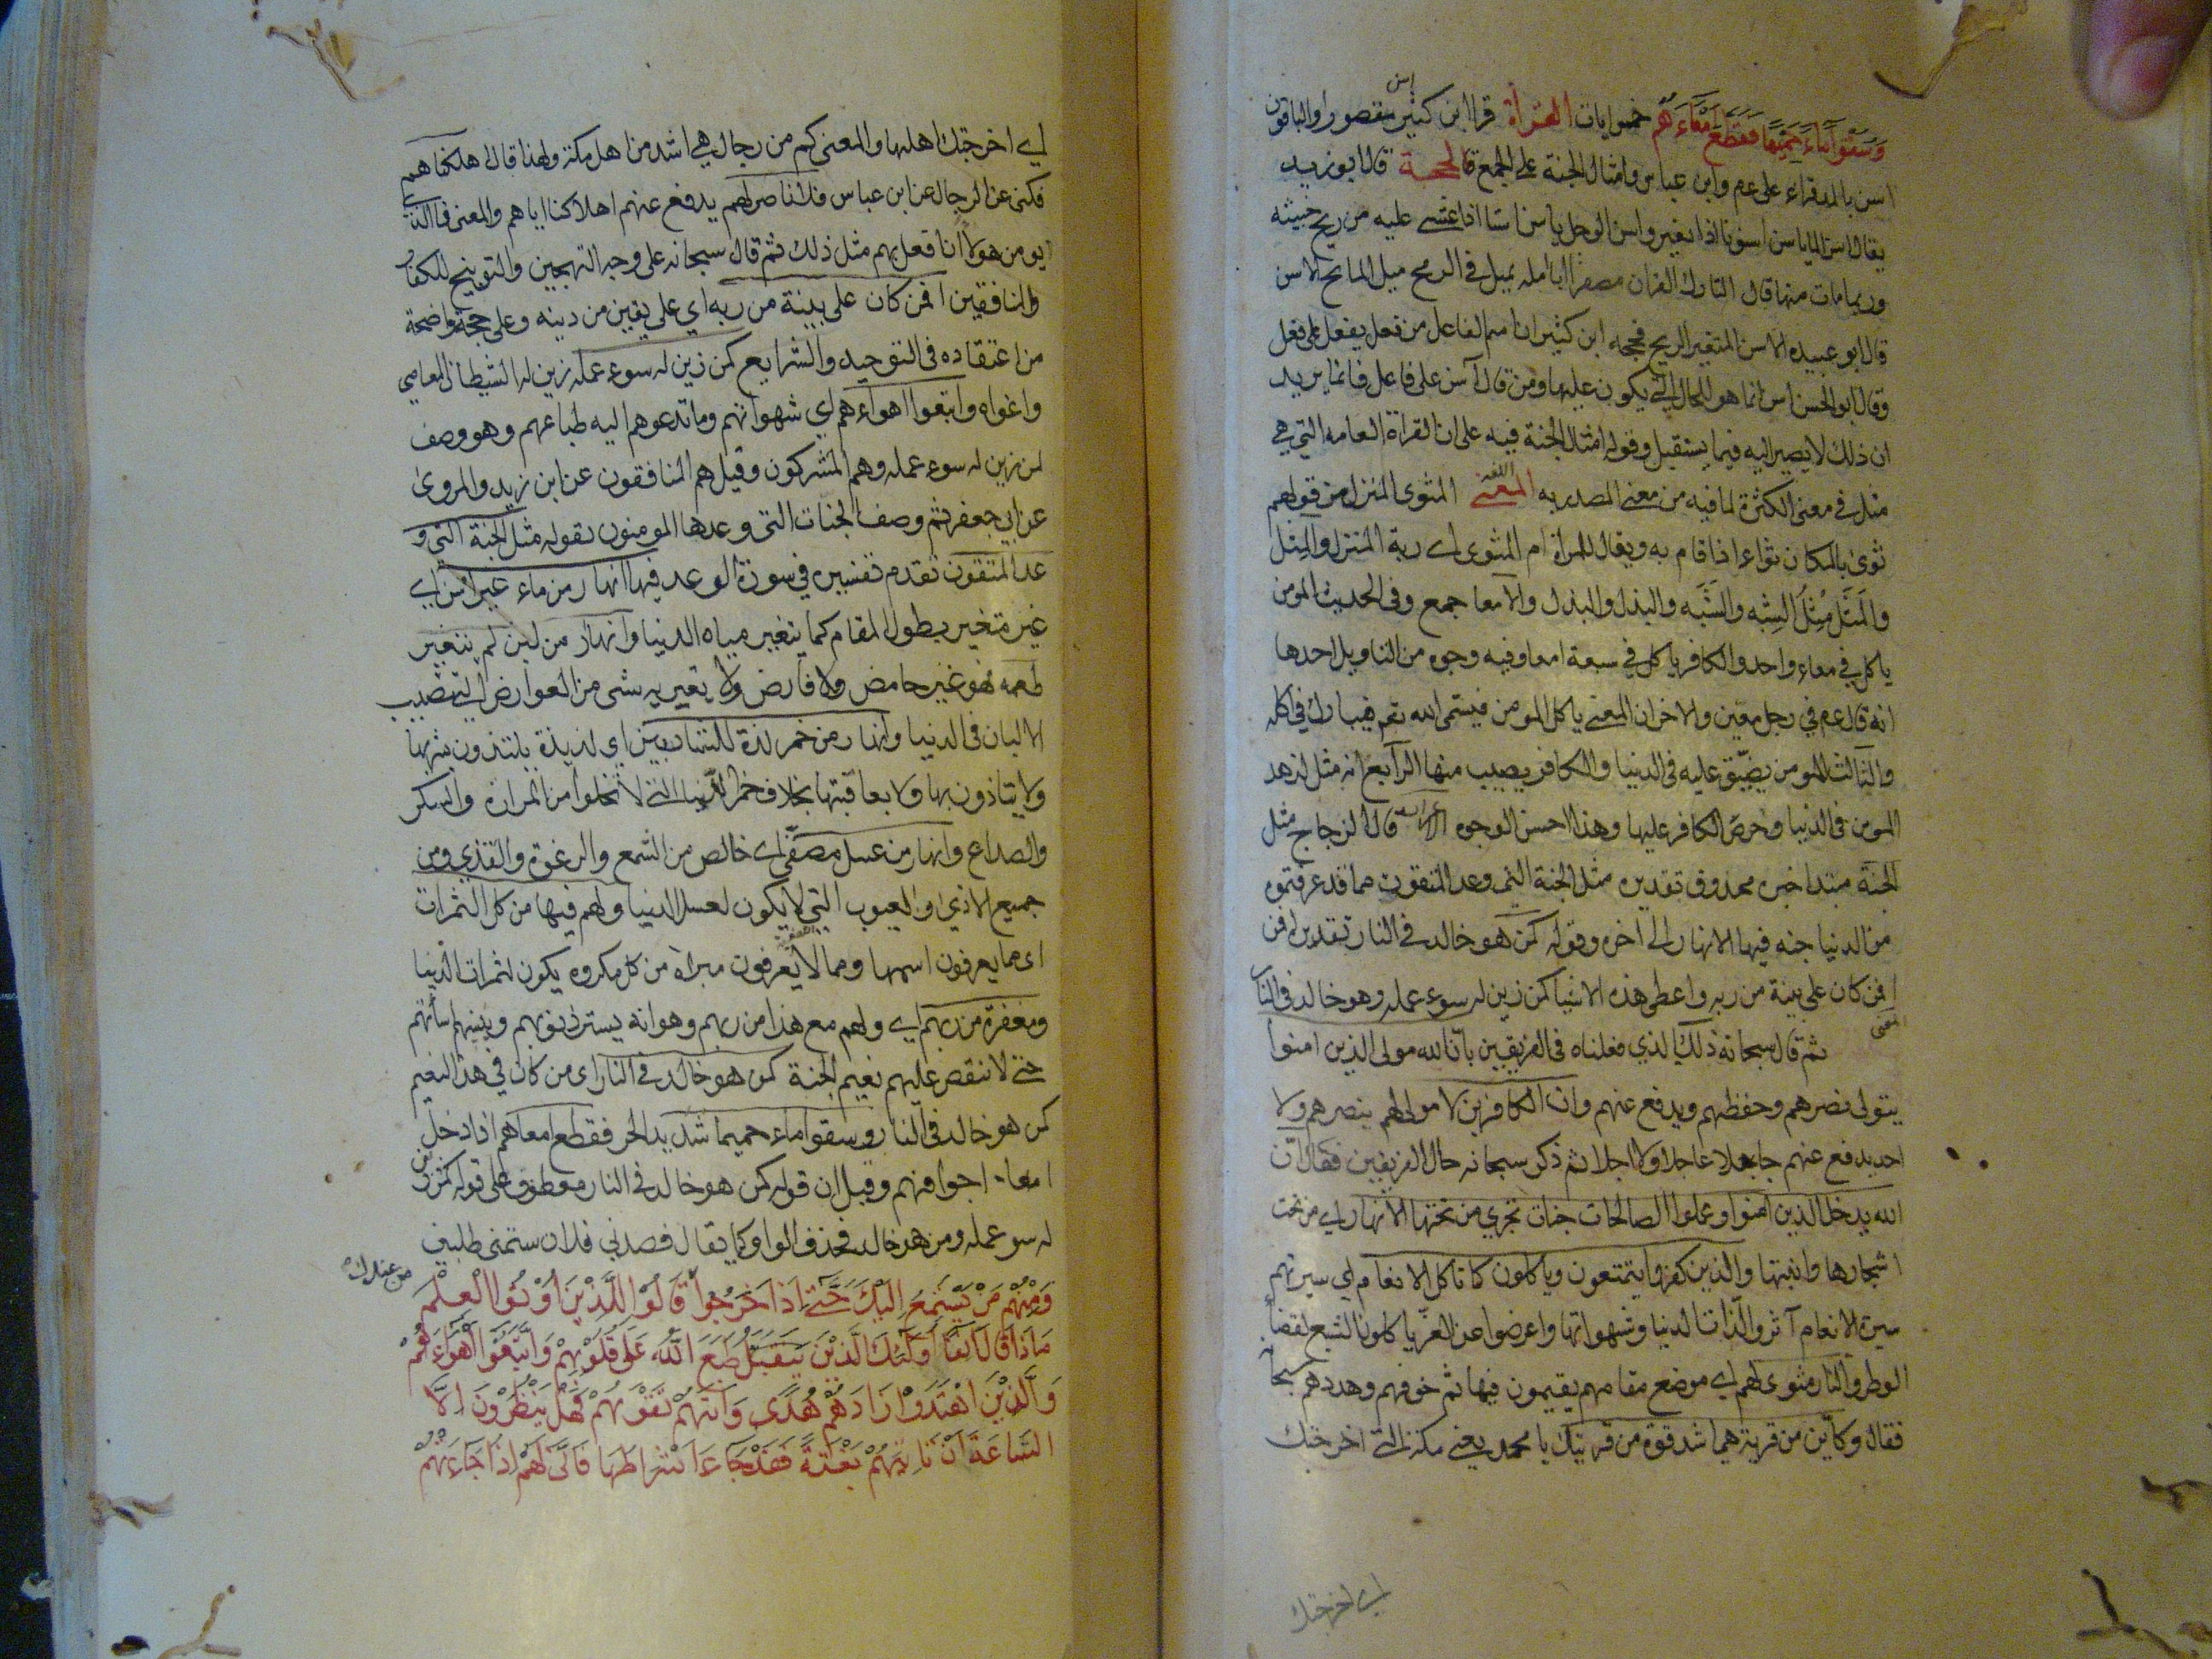 وَسُقُوا مَاءً حَمِيمًا فَقَطَّعَ أَمْعَاءَهُمْ خمس ايات القراة قرا ابن كثير اسن مقصورا والباقون
اسن بالمد قراءة علي عم وابن عباس وامثال الجنة على الجمع الحجة قال ابو زيد
يقال اسن الماء ياسن اسونا اذا تغير واسن الرجل ياسن اسنا اذا غشي عليه من ريح خبيثه
وربما مات منها قال التارك القرن مصفرا انامله يميل في الرمح ميل المايح الاسن
قال ابو عبيده الاسن المتغير الريح فحجه ابن كثير ان اسم الفاعل من فعل يفعل على فعل
وقال ابو الحسن اسن انما هو للحال التي يكون عليها ومن قال آسن على فاعل فانما يريد
ان ذلك لا يصير اليه فيما يستقبل وقوله امثال الجنة فيه على ان القراة العامه التي هي
مثل في معنى الكثرة لما فيه من معنى المصدريه اللغة المثوى المنزل من قولهم
ثوى بالمكان ثواء اذا اقام به ويقال للمراة ام المثوى اي ربة المنزل والمِثل
والمَثَل مِثل الشِبه والشَبَه والبِدل والبَدل والامعا جمع وفي الحديث المومن
ياكل في معاء واحد والكافر ياكل في سبعة امعا وفيه وجوه من التاويل احدها
انه قال عم في رجل معين والاخر ان المعنى ياكل المومن فيسمى الله تعم فيبارك في اكله
والثالث المومن يضيق عليه في الدنيا والكافر يصيب منها الرابع انه مثل لزهد
المومن في الدنيا وحرص الكافر عليها وهذا احسن الوجوه الاعراب قال الزجاج مثل
الجنة مبتدا خبره محذوف تقديره مثل الجنة التي وعد المتقون مما قد عرفتموه
من الدنيا جنه فيها الانهار الى اخره وقوله كمن هو خالد في النار تقديره افمن
افمن كان على بينة من ربه واعطى هذه الاشيا كمن زين له سوء عمله وهو خالد في النار
المعنى ثم قال سبحانه ذلك الذي فعلناه في الفريقين بان الله مولى الذين امنوا
يتولى نصرهم وحفظهم ويدفع عنهم وان الكافرين لا مولى لهم ينصرهم ولا
احد يدفع عنهم عاجلا ولا اجلا ثم ذكر سبحانه حال الفريقين فقال ان
الله يدخل الذين امنوا وعملوا الصالحات جنات تجري من تحتها الانهار اي من تحت
اشجارها وابنيتها والذين كفروا يتمتعون وياكلون كما تاكل الانعام اي سيرتهم
سيرة الانعام آثروا لذات الدنيا وشهواتها واعرضوا عن العبر ياكلون للشبع لقضاء
الوطر والنار مثوى لهم اي موضع مقامهم يقيمون فيها ثم خوفهم وهددهم سبحا
فقال وكاين من قرية هي اشد قوة من قريتك يا محمد يعني مكة التي اخرجتك
اي اخرجتك
اي اخرجتك اهلها والمعنى كم من رجال هي اشد من اهل مكة ولهذا قال اهلكناهم
فكنى عن الرجال عن ابن عباس فلا ناصر لهم يدفع عنهم اهلاكنا اياهم والمعنى فما الذي
يومن هولا انا فعل بهم مثل ذلك ثم قال سبحانه على وجه التهجين والتوبيخ للكفار
والمنافقين افمن كان على بينة من ربه اي على يقين من دينه وعلى حجة واضحة
من اعتقاده في التوحيد والشرايع كمن زين له سوء عمله زين له الشيطان المعاصي
واغواه واتبعوا اهواءهم اي شهواتهم وما تدعوهم اليه طباعهم وهو وصف
لمن زين له سوء عمله وهم المشركون وقيل هم المنافقون عن ابن زيد والمروى
عن ابي جعفر ثم وصف الجنات التي وعدها المومنون بقوله مثل الجنة التي و
عد المتقون تقدم تفسيره في سورة الرعد فيها انهار من ماء غير اسن اي
غير متغير بطول المقام كما يتغير مياه الدنيا وانهار من لبن لم يتغير
طعمه فهو غير حامض ولا قارص ولا يتغير به شي من العوارض التي تصيب
الالبان في الدنيا وانهار من خمر لذة للشاربين اي لذيذة يلتذون بشربها
ولا يتاذون بها ولا بعاقبتها بخلاف خمر الدنيا التي لا تخلوا من المرارة والسكر
والصداع وانهار من عسل مصفى اي خالص من الشمع والرغوة والقذي ومن
جميع الاذى والعيوب التي لا يكون لعسل الدنيا ولهم فيها من كل الثمرات
اى مما يعرفون اسمها ومما لا يعرفون مبراة من كل مكروه يكون لثمرات الدنيا
ومغفرة من ربهم اي ولهم مع هذا من ربهم وهو انه يستر ذنوبهم وينسيهم سياتهم
حتى لا تنقص عليهم نعيم الجنة كمن هو خالد في النار اى من كان في هذا النعيم
كمن هو خالد في النار وسقوا ماء حميما شديد الحر فقطع امعاهم اذا دخل
امعاء اجوافهم وقيل ان قوله كمن هو خالد في النار معطوف على قوله كمن زين
له سو عمله ومن هو خالد فحذف الواو كما يقال قصدني فلان ستمنى ظلمني
وَمِنْهُمْ مَنْ يَسْتَمِعُ اِلَيْكَ حَتَّى اِذَا خَرَجُوا مِنْ عِنْدِكَ قَالُوا لِلَّذِينَ اُوتُوا الْعِلْمَ
مَاذَا قَالَ اٰنِفًا اُولٰئِكَ الَّذِينَ طَبَعَ اللّٰهُ عَلَى قُلُوبِهِمْ وَاتَّبَعُوا اَهْوَاءَهُمْ
وَالَّذِينَ اهْتَدَوْا زَادَهُمْ هُدًى وَاٰتٰهُمْ تَقْوٰىهُمْ فَهَلْ يَنْظُرُونَ اِلَّا
السَّاعَةَ اَنْ تَاْتِيَهُمْ بَغْتَةً فَقَدْ جَاءَ اَشْرَاطُهَا فَاَنَّى لَهُمْ اِذَا جَاءَتْهُمْ